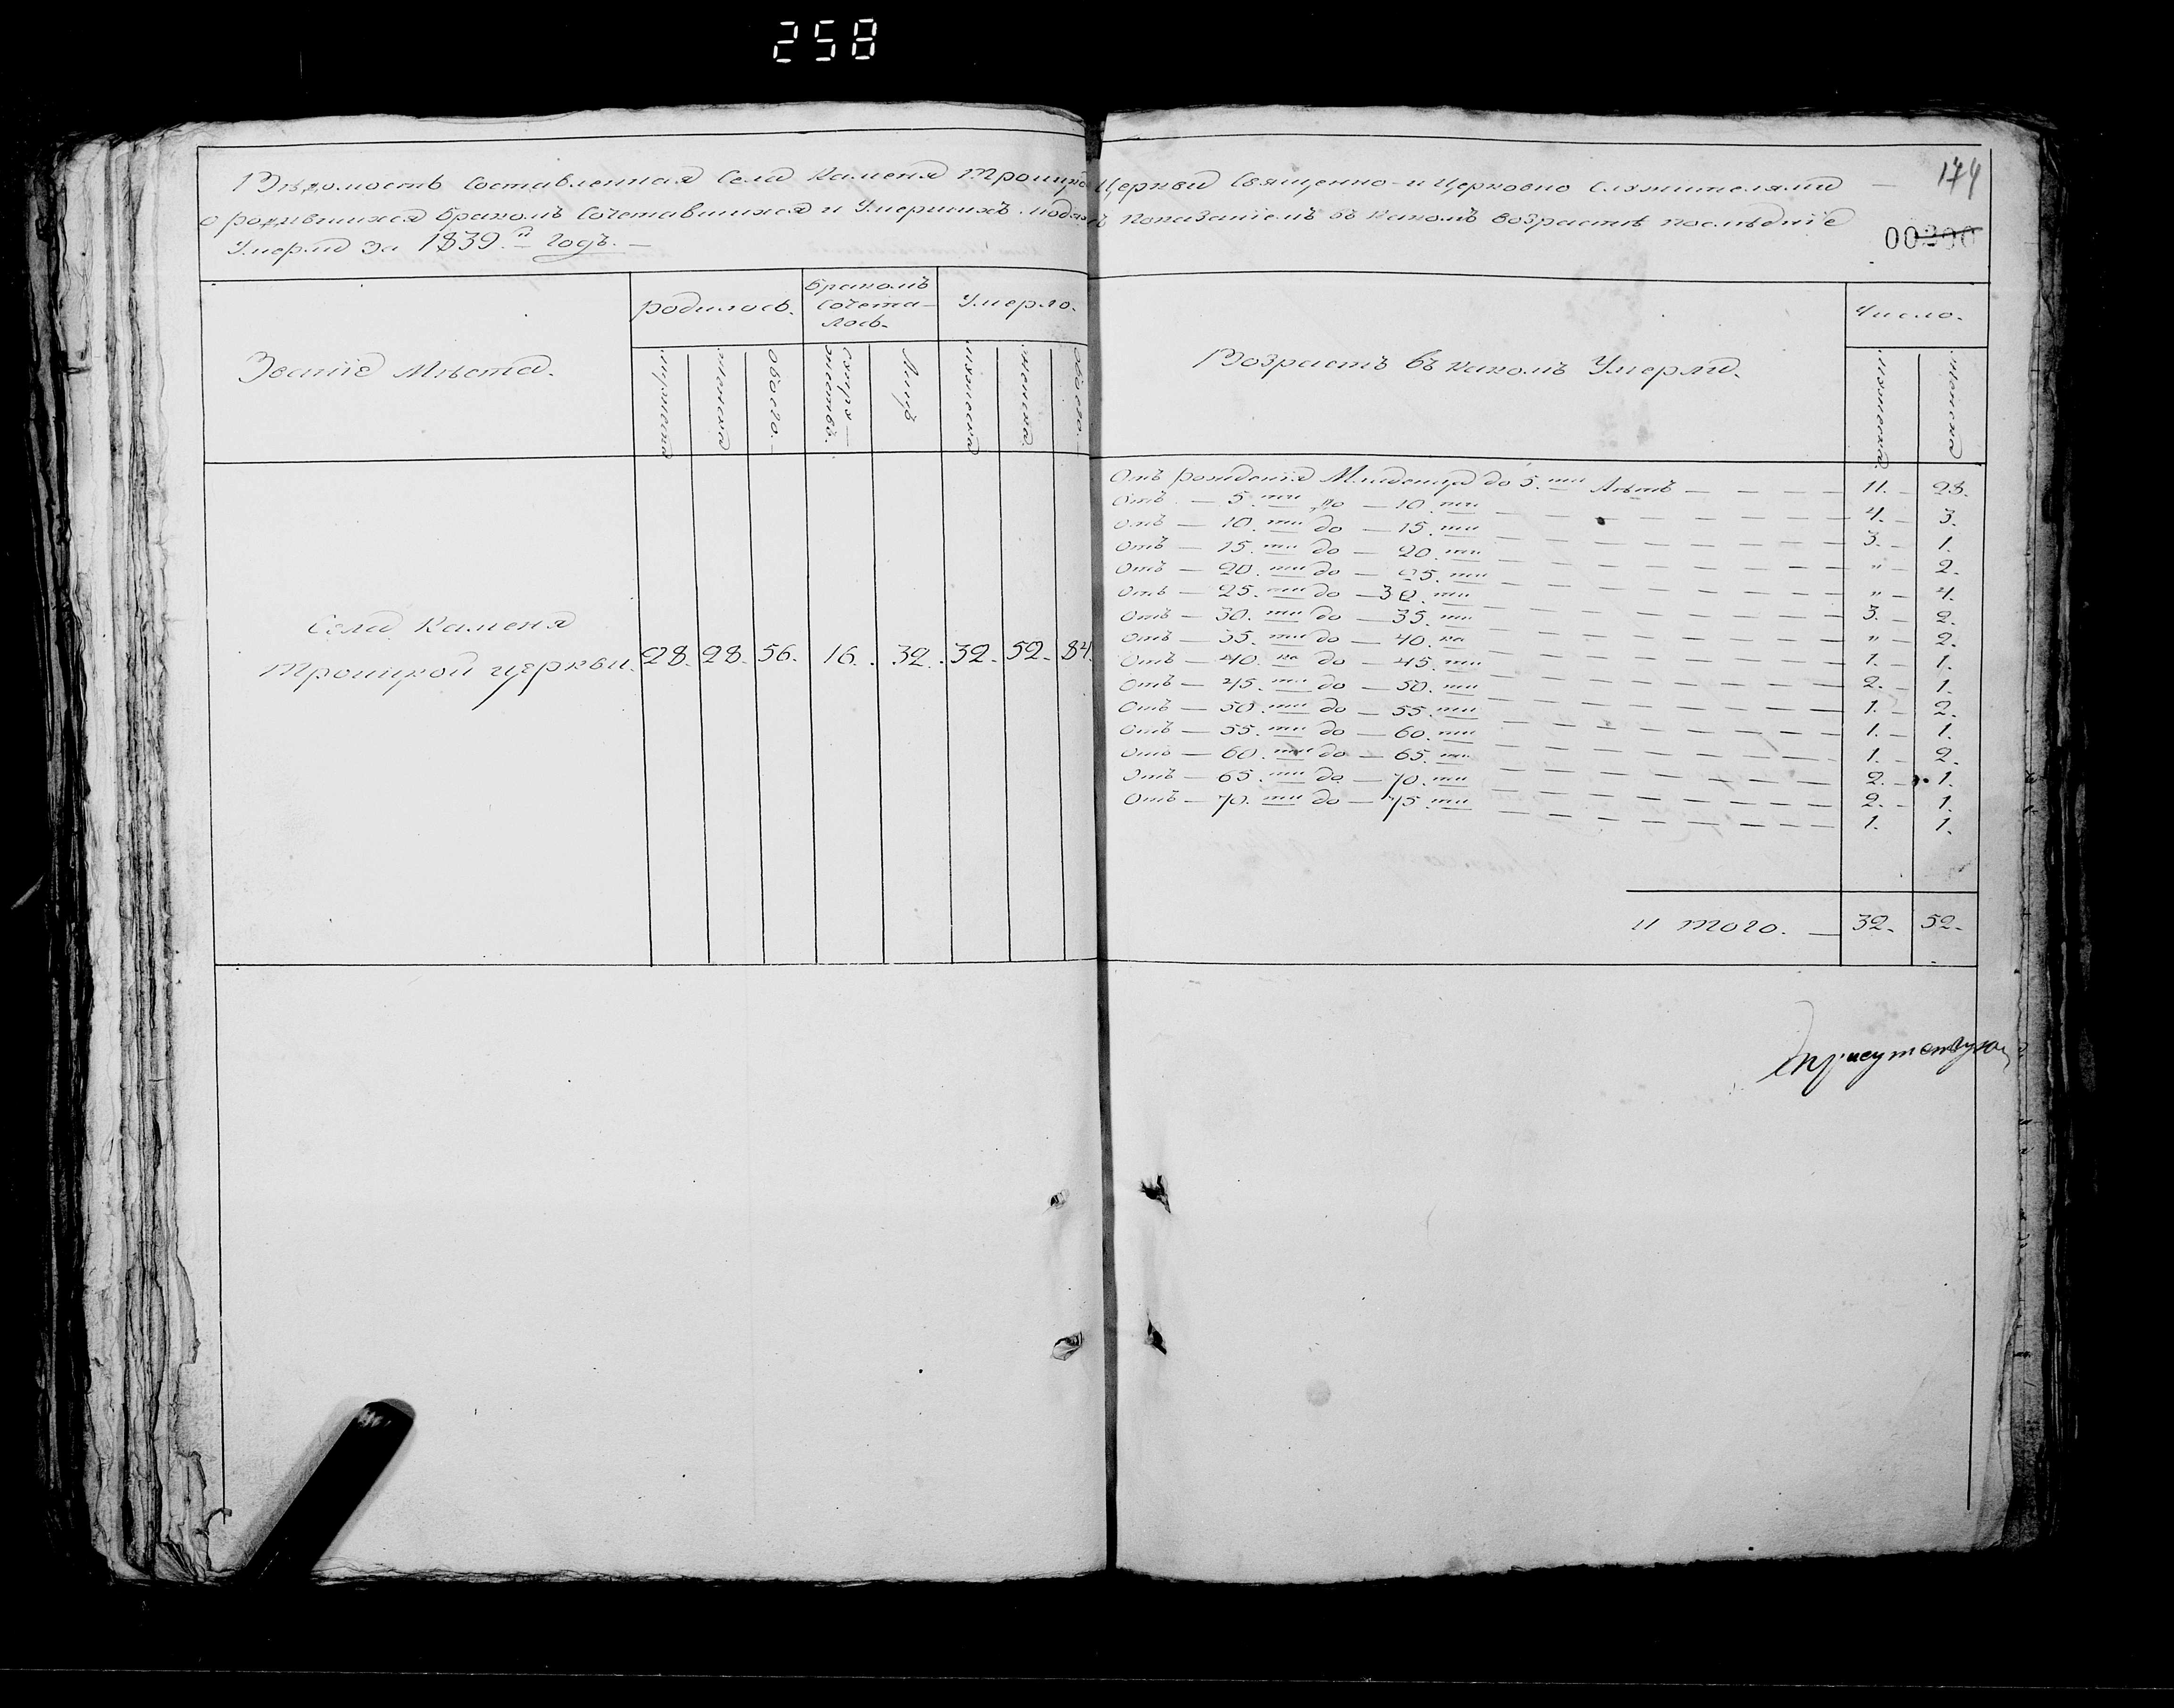 258
174
00200
Вѣдомость составленная Села Каменя Троицкой Церкви Священно-и Церковно служителями —
о родившихся Бракомъ Сочетавшихся и Умершихъ показаніемъ въ какомъ возрастѣ послѣдніе
Умерли за 1839.й годъ. —
Званіе Мѣста.
родилось.
Бракомъ
Сочета-
лось.
Умерло.
мужеска
женска
обоего.
супру-
жествъ.
Лицъ
мужеска
женска
обоего.
Возрастъ въ какомъ Умерли.
Число.
мужеска
женска
Села Каменя
Троицкой церкви. 28. 28. 56. 16. 32. 32. 52. 84.
Отъ рожденія Младенца до 5.ти лѣтъ — 11. 28.
Отъ — 5.ти до — 10.ти — 4. 3.
Отъ — 10.ти до — 15.ти — 3. 1.
Отъ — 15.ти до — 20.ти — " 2.
Отъ — 20.ти до — 25.ти — " 4.
Отъ — 25.ти до — 30.ти — 3. 2.
Отъ — 30.ти до — 35.ти — " 2.
Отъ — 35.ти до — 40.ка — 1. 1.
Отъ — 40.ка до — 45.ти — 2. 1.
Отъ — 45.ти до — 50.ти — 1. 2.
Отъ — 50.ти до — 55.ти — 1. 1.
Отъ — 55.ти до — 60.ти — 1. 2.
Отъ — 60.ти до — 65.ти — 2. 1.
Отъ — 65.ти до — 70.ти — 2. 1.
Отъ — 70.ти до — 75.ти — 1. 1.
И того. — 32. 52.